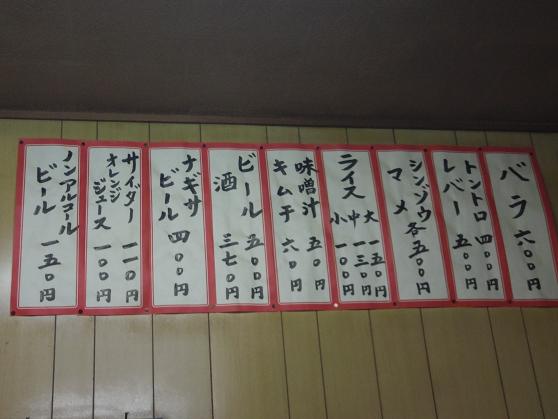 バラ 六〇〇円
トントロ 四〇〇円
レバー 五〇〇円
シンゾウ
マメ 各五〇〇円
ライス 大 一五〇円
中 一三〇円
小 一〇〇円
味噌汁 五〇円
キムチ 六〇円
ビール 五〇〇円
酒 三七〇円
ナギサビール 四〇〇円
サイダー 一一〇円
オレンジジュース 一〇〇円
ノンアルコールビール 一五〇円